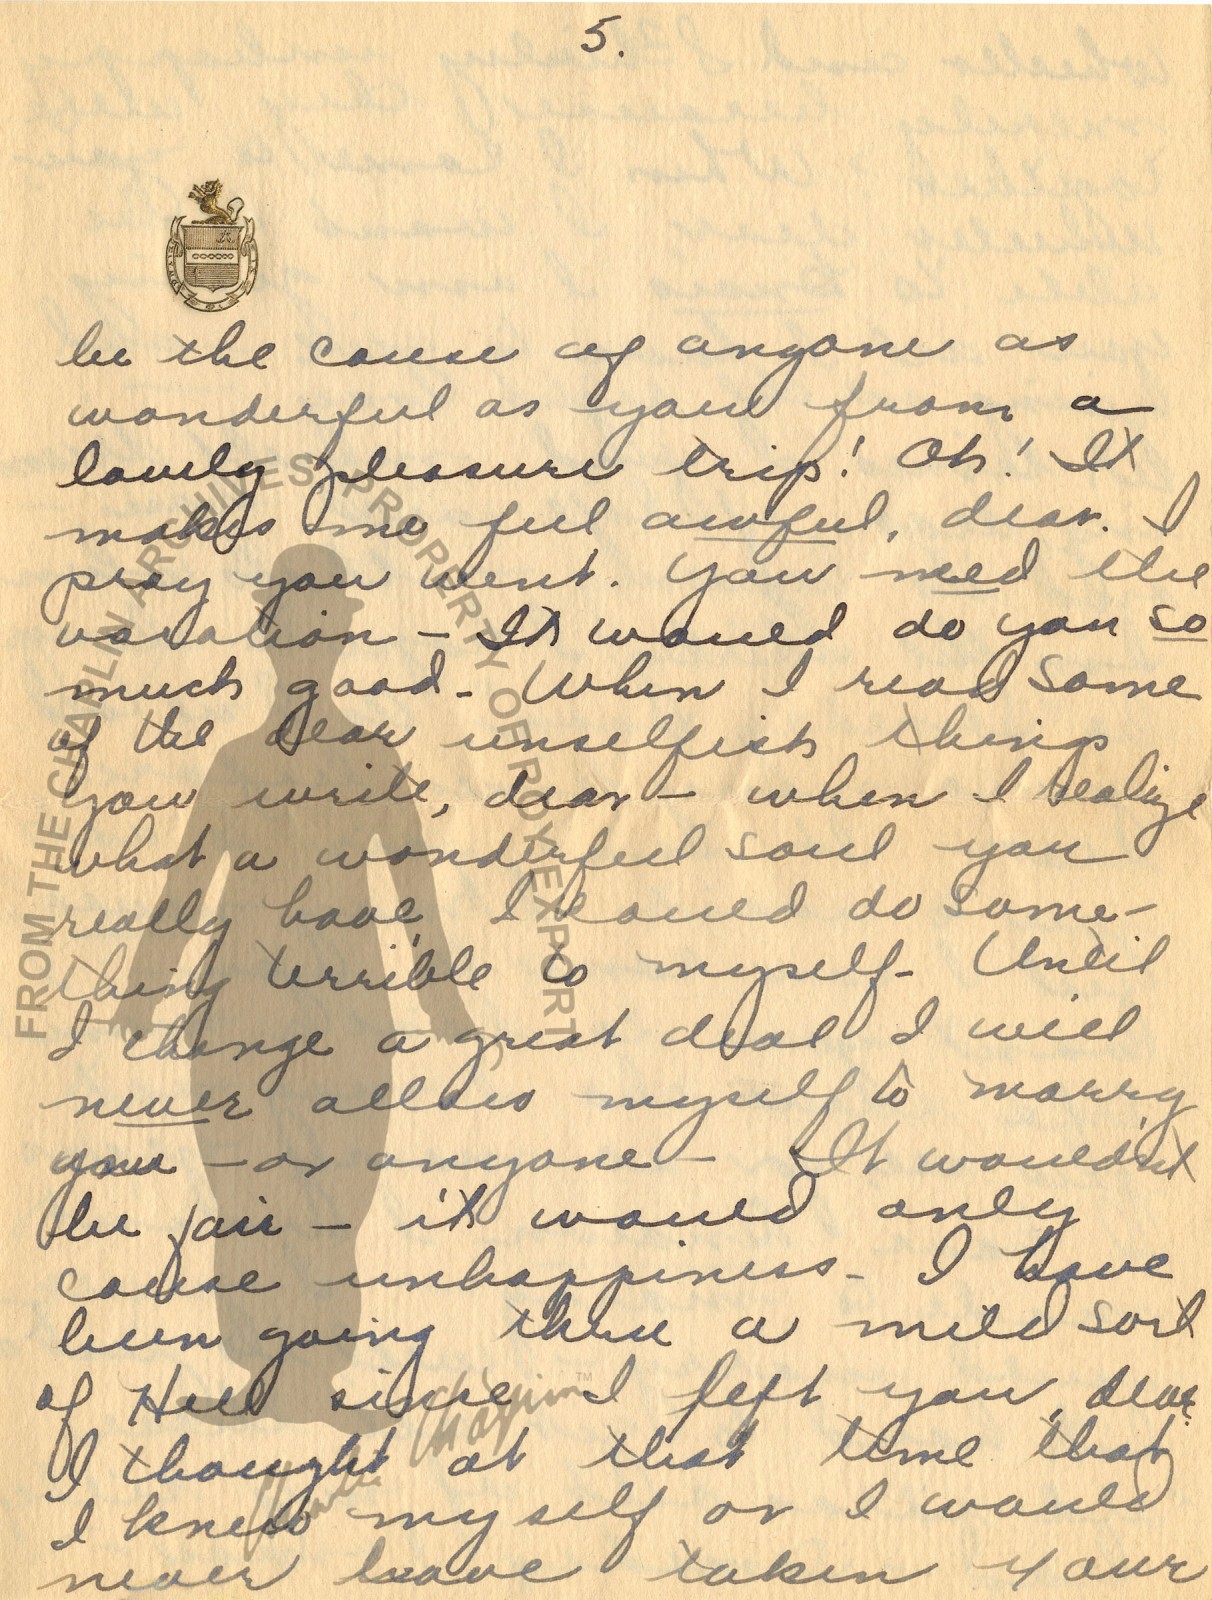 5.
be the cause of anyone as
wonderful as you from a
lovely pleasure trip! Oh! It
makes me feel awful, dear. I
pray you went. You need the
vacation – It would do you so
much good – When I read some
of the dear unselfish things
you write, dear – when I realize
what a wonderful soul you
really have, I could do some-
thing terrible to myself – Until
I change a great deal I will
never allow myself to marry
you – or anyone – It wouldn't
be fair – it would only
cause unhappiness – I have
been going thru a mild sort
of Hell since I left you, dear.
I thought at that time that
I knew myself or I would
never have taken your
FROM THE CHAPLIN ARCHIVES. PROPERTY OF ROY EXPORT
Charlie Chaplin™